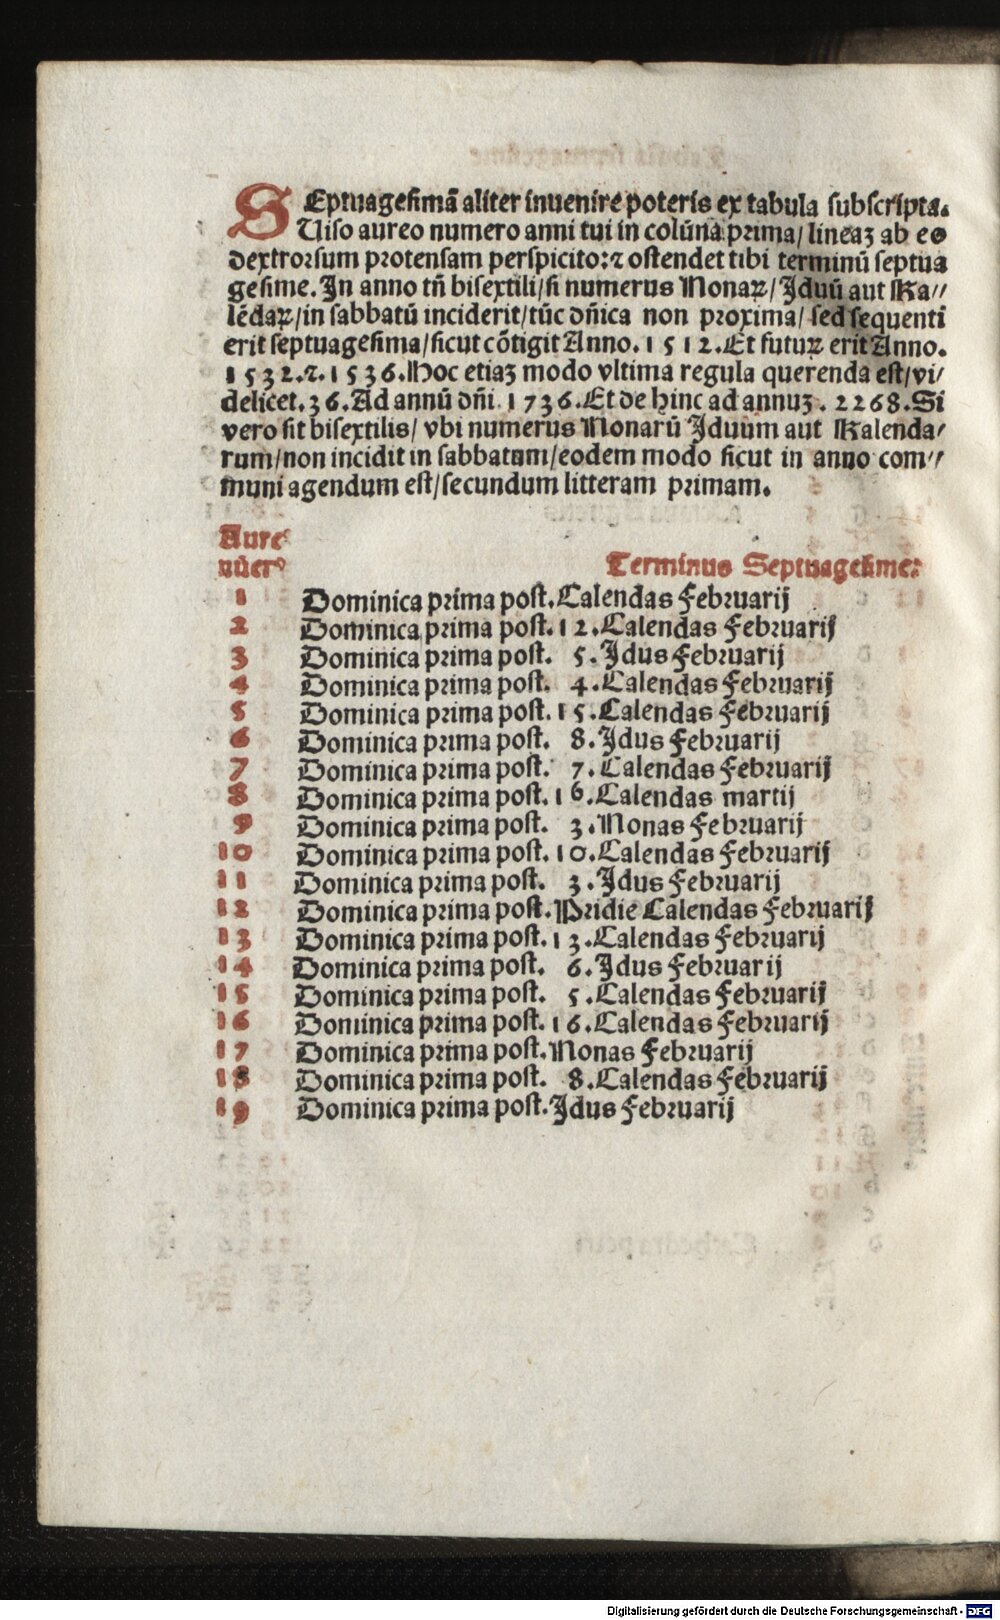 SEptuagesimā aliter inuenire poteris ex tabula subscripta.
Uiso aureo numero anni tui in colūna prima/ lineaʒ ab eo
dextrorsum protensam perspicito: ⁊ ostendet tibi terminū septua
gesime. In anno tñ bisextili/ si numerus Nonaꝝ/ Iduū aut Ka⸗
lēdaꝝ/ in sabbatū inciderit/ tūc dñica non proxima/ sed sequenti
erit septuagesima/ sicut cōtigit Anno. 1512. Et futuꝝ erit Anno.
1532. ⁊. 1536. Hoc etiaʒ modo vltima regula querenda est/ vi⸗
delicet. 36. Ad annū dñi 1736. Et de hinc ad annuʒ. 2268. Si
vero sit bisextilis/ vbi numerus Nonarū Iduum aut Kalenda⸗
rum/ non incidit in sabbatum/ eodem modo sicut in anno com⸗
muni agendum est/ secundum litteram primam.
Aure⁹
nūer⁹ Terminus Septuagesime:
1 Dominica prima post. Calendas Februarij
2 Dominica prima post. 12. Calendas Februarij
3 Dominica prima post. 5. Idus Februarij
4 Dominica prima post. 4. Calendas Februarij
5 Dominica prima post. 15. Calendas Februarij
6 Dominica prima post. 8. Idus Februarij
7 Dominica prima post. 7. Calendas Februarij
8 Dominica prima post. 16. Calendas martij
9 Dominica prima post. 3. Nonas Februarij
10 Dominica prima post. 10. Calendas Februarij
11 Dominica prima post. 3. Idus Februarij
12 Dominica prima post. Pridie Calendas Februarij
13 Dominica prima post. 13. Calendas Februarij
14 Dominica prima post. 6. Idus Februarij
15 Dominica prima post. 5. Calendas Februarij
16 Dominica prima post. 16. Calendas Februarij
17 Dominica prima post. Nonas Februarij
18 Dominica prima post. 8. Calendas Februarij
19 Dominica prima post. Idus Februarij
Digitalisierung gefördert durch die Deutsche Forschungsgemeinschaft - DFG